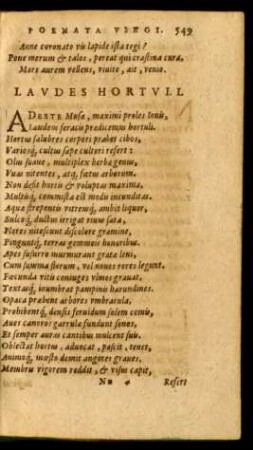 POEMATA VIRGI. 549
Anne coronato vis lapide ista tegi?
Pone merum & talos, pereat qui crastina curat,
Mors aurem vellens, viuite, ait, venio.
LAVDES HORTVLI.
ADESTE Musæ, maximi proles Iouis,
Laudem feracis prædicemus hortuli.
Hortus salubres corpori præbet cibos,
Variosq́; cultus sæpe cultori refert:
Olus suaue, multiplex herbæ genus,
Vuas nitentes, atq; fœtus arborum.
Non desit hortis & voluptas maxima,
Multisq́; commista est modis iucunditas.
Aquæ strepentis vitreusq́; ambit liquor,
Sulcoq́; ductus irrigat riuus sata,
Flores nitescunt discolore gramine,
Pinguntq́; terras gemmeis honoribus.
Apes susurro murmurant grata leni,
Cum summa florum, vel nouos rores legunt.
Fœcunda vitis coniuges vlmos grauat,
Textasq́; inumbrat pampinis harundines.
Opaca præbent arbores vmbracula,
Prohibentq́; densis feruidum solem comis,
Aues canoros garrulæ fundunt sonos,
Et semper aures cantibus mulcent suis.
Oblectat hortus, aduocat, pascit, tenet,
Animoq́; mœsto demit angores graues.
Membris vigorem reddit, & visus capit,
Nn Refert